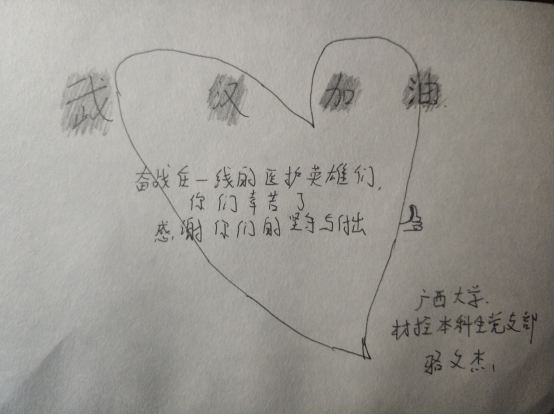 武汉加油
奋战在一线的医护英雄们,
你们辛苦了
感谢你们的坚守与付出
广西大学.
材控本科生党支部
骆文杰,